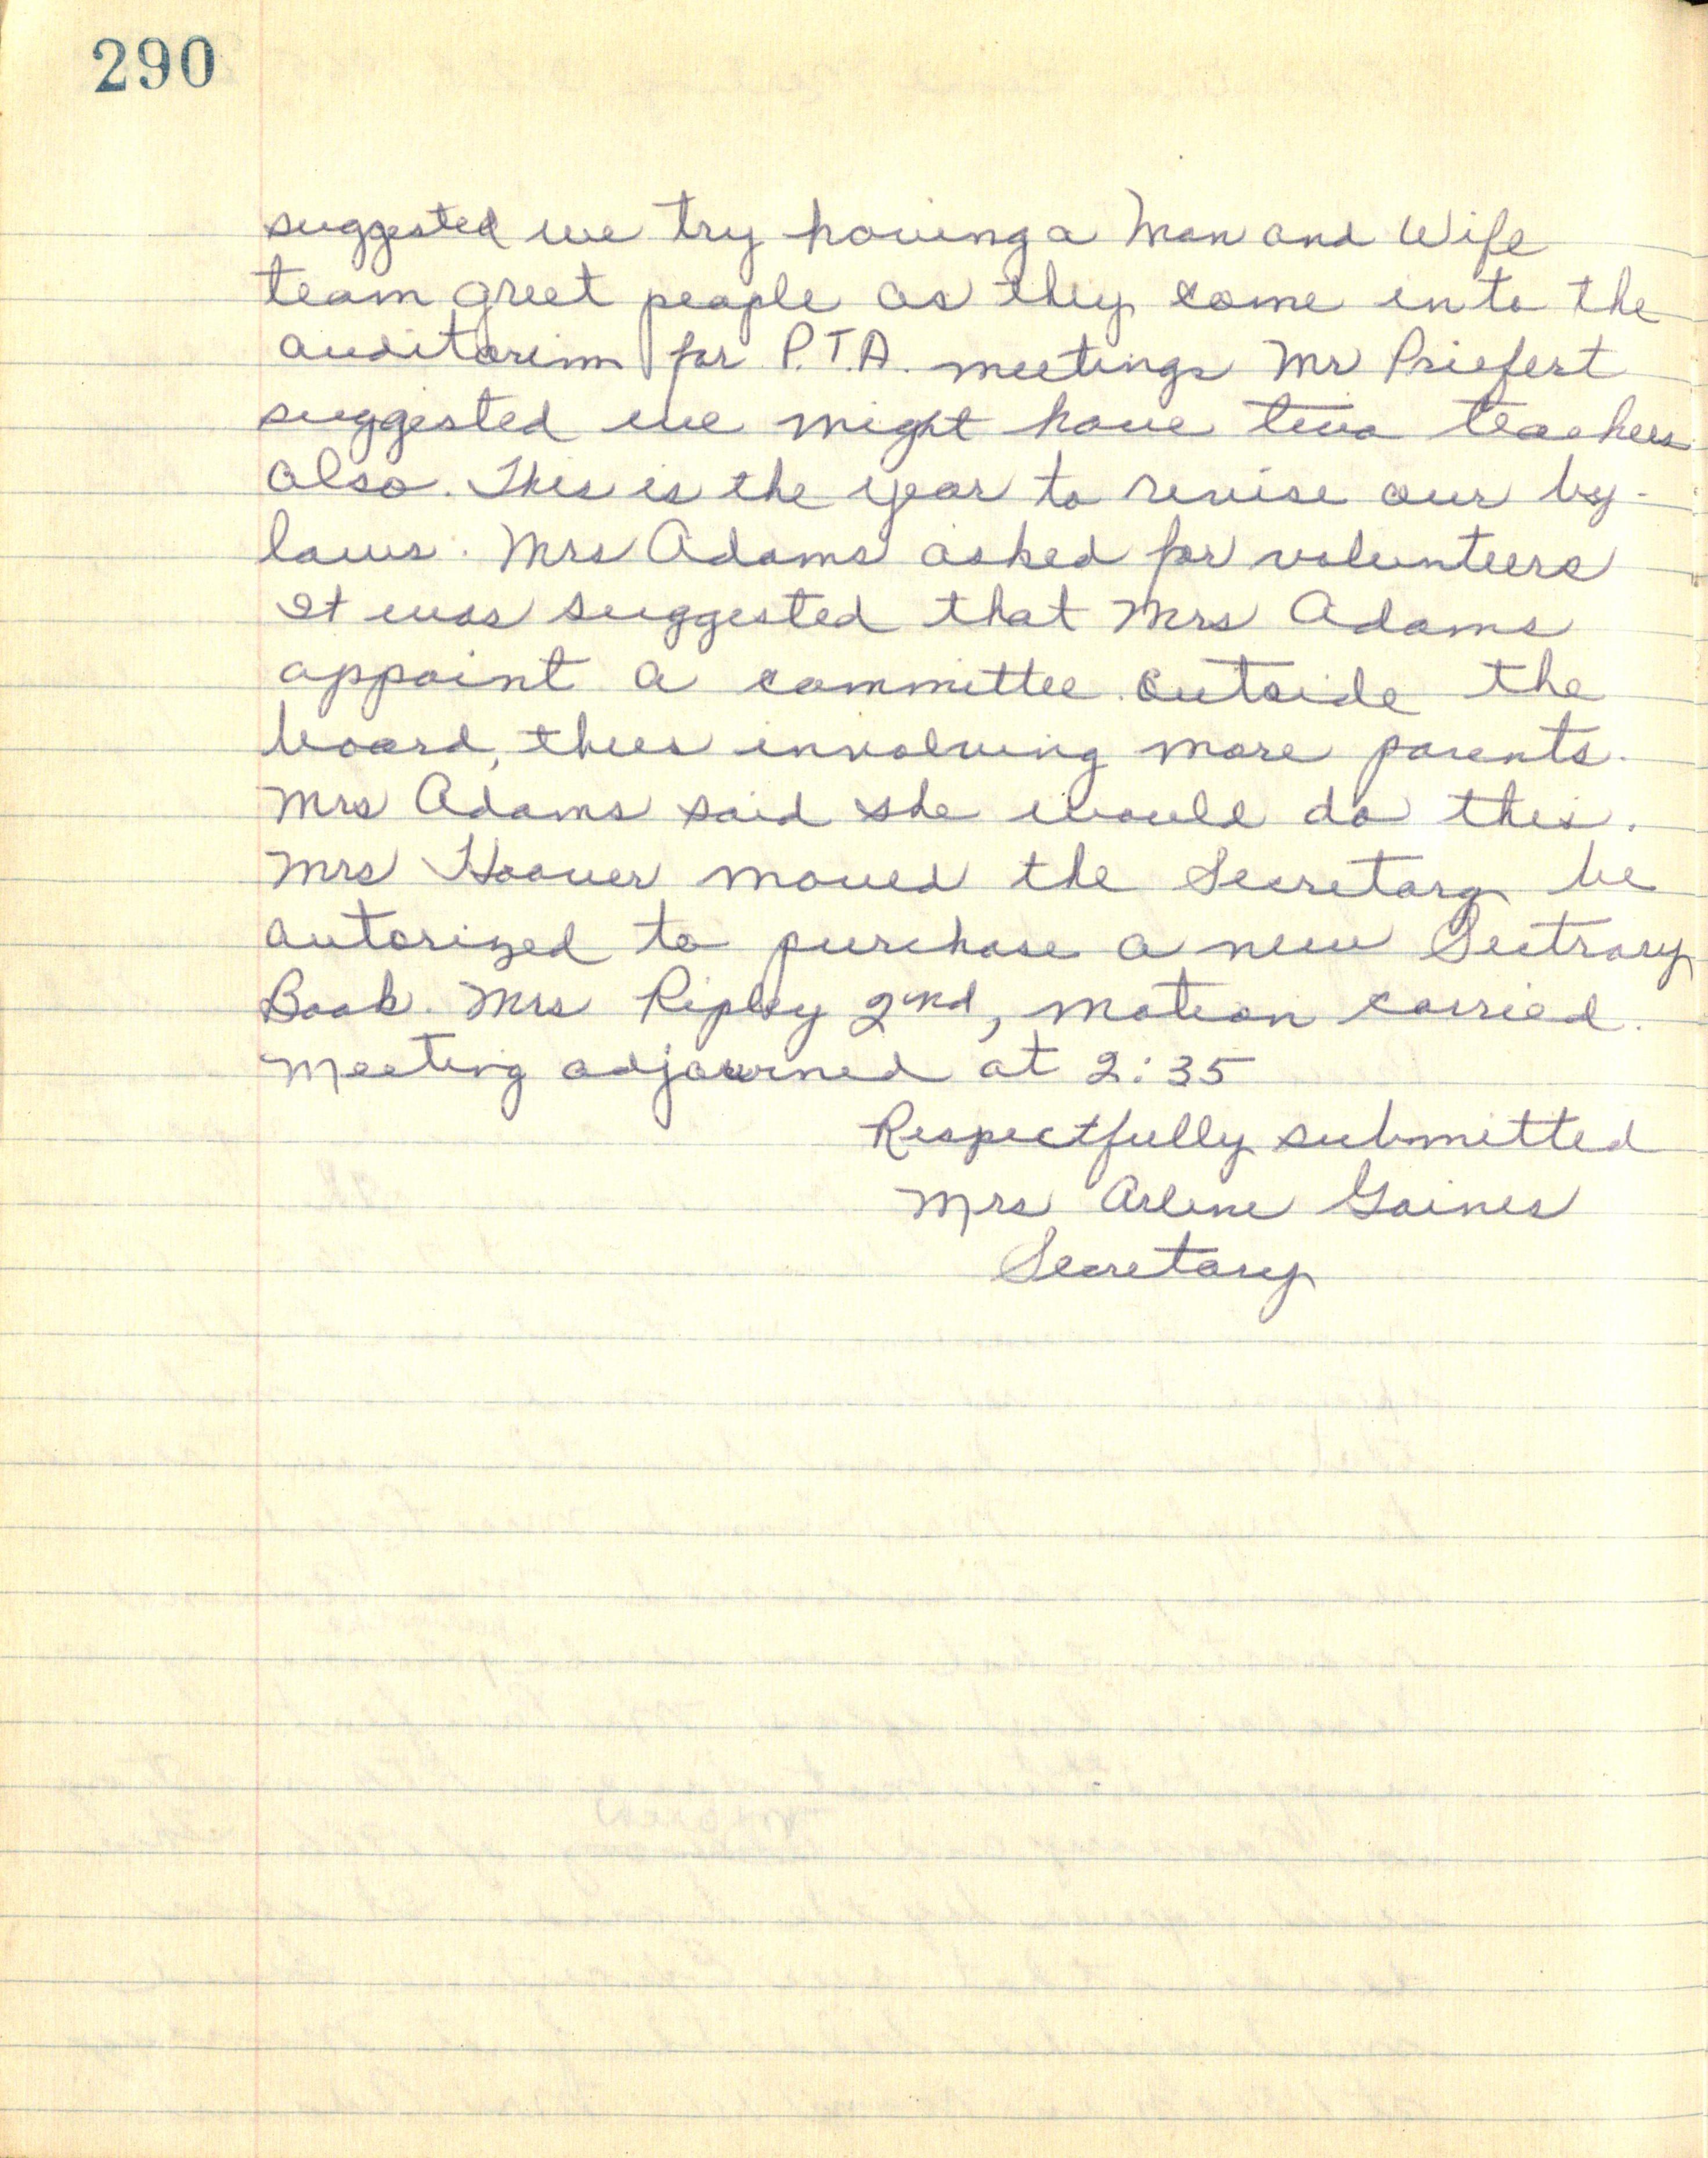 290
suggested we try having a Man and Wife
team greet people as they come into the
auditorium for P.T.A. meetings Mr Priefert
suggested we might have two teachers
also. This is the year to revise our by-
laws. Mrs Adams asked for volunteers
It was suggested that Mrs Adams
appoint a committee outside the
board, thus involving more parents.
Mrs Adams said she would do this.
Mrs Hoover moved the Secretary be
autorized to purchase a new Sectrary
Book. Mrs Ripley 2nd, motion carried.
Meeting adjourned at 2:35
Respectfully submitted
Mrs Arlene Gaines
Secretary